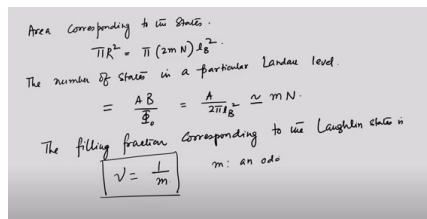 Area Corresponding to the States.
πR² = π (2m N) l_B².
The number of states in a particular Landau level.
= AB/Φ₀ = A/2πl_B² ≃ mN.
The filling fraction corresponding to the Laughlin states is
ν = 1/m m: an odd